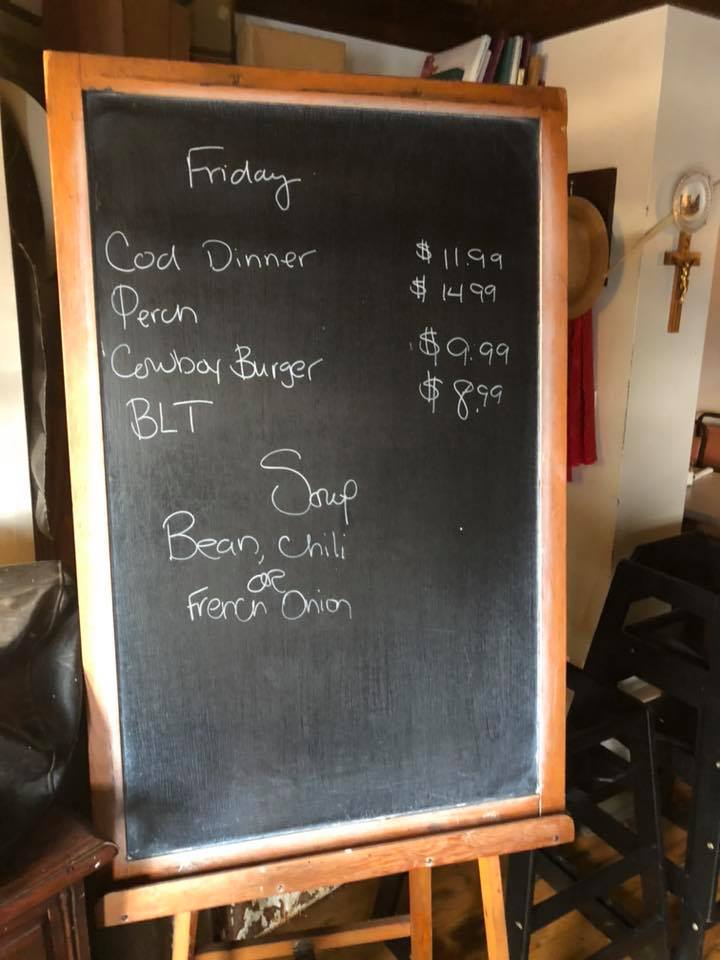 Friday
Cod Dinner $11.99
Perch $14.99
Cowboy Burger $9.99
BLT $8.99
Soup
Bean, Chili
or
French Onion